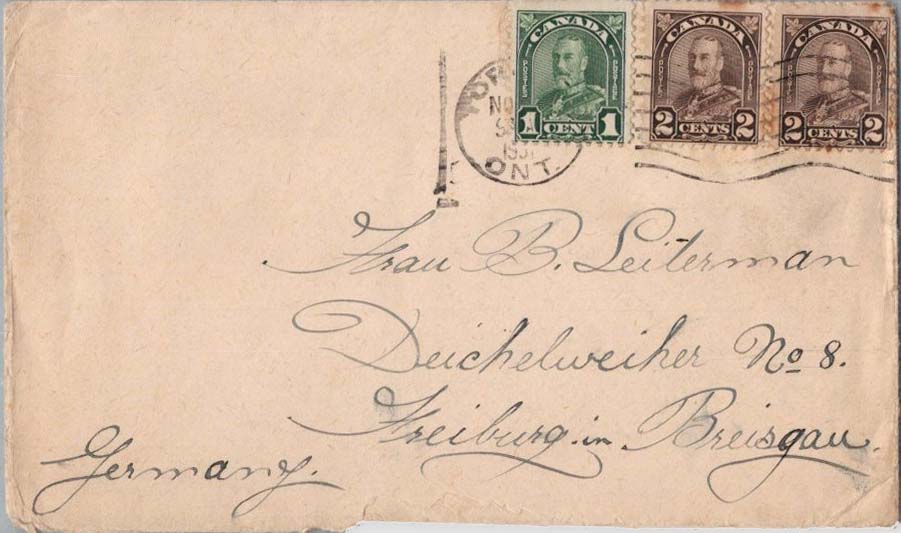 CANADA
POSTES POSTAGE
1 CENT 1
CANADA
POSTES POSTAGE
2 CENTS 2
CANADA
POSTES POSTAGE
2 CENTS 2
NO
ONT.
Frau B. Leiterman
Deichelweiher No 8.
Freiburg in Breisgau.
Germany.